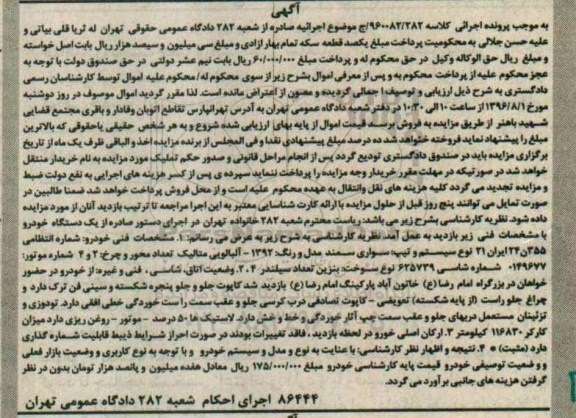 آگهی
به موجب پرونده اجرائی کلاسه ۹۶۰۰۸۲/۲۸۲/ج موضوع اجرائیه صادره از شعبه ۲۸۲ دادگاه عمومی حقوقی تهران له ثریا قلی بیاتی و
علیه حسن جلالی به محکومیت پرداخت مبلغ یکصد قطعه سکه تمام بهار آزادی و مبلغ سی میلیون و سیصد هزار ریال بابت اصل خواسته
و مبلغ ریال حق الوکاله وکیل در حق محکوم له و پرداخت مبلغ ۶۰/۰۰۰/۰۰۰ ریال بابت نیم عشر دولتی در حق صندوق دولت با توجه به
عجز محکوم علیه از پرداخت محکوم به و پس از معرفی اموال بشرح زیر از سوی محکوم له/ محکوم علیه اموال توسط کارشناسان رسمی
دادگستری به شرح ذیل ارزیابی و توصیف اجمالی گردیده و مصون از اعتراض مانده است. لذا مقرر گردید اموال موصوف در روز دوشنبه
مورخ ۱۳۹۶/۸/۱ از ساعت ۱۰ الی ۱۰:۳۰ در دفتر شعبه دادگاه عمومی تهران به آدرس تهرانپارس تقاطع اتوبان وفادار و باقری مجتمع قضایی
شهید باهنر از طریق مزایده به فروش برسد قیمت اموال از پایه بهای ارزیابی شده شروع و به هر شخص حقیقی یا حقوقی که بالاترین
مبلغ را پیشنهاد نماید فروخته خواهد شد ده درصد مبلغ پیشنهادی نقدا و فی المجلس از برنده مزایده اخذ و الباقی ظرف یک ماه از تاریخ
برگزاری مزایده باید در صندوق دادگستری تودیع گردد پس از انجام مراحل قانونی و صدور حکم تملیک مورد مزایده به نام خریدار منتقل
خواهد شد در صورتیکه در مهلت مقرر خریدار وجه مزایده را پرداخت ننماید سپرده ی پس از کسر هزینه های اجرایی به نفع دولت ضبط
و مزایده تجدید می گردد کلیه هزینه های نقل وانتقال به عهده محکوم علیه است و از محل فروش پرداخت خواهد شد ضمنا طالبین در
صورت تمایل می توانند پنج روز قبل از حلول مزایده با ارائه کارت شناسایی معتبر به این اجرا مراجعه تا ترتیب بازدید آنان از مورد مزایده
داده شود. نظریه کارشناسی بشرح زیر می باشد: ریاست محترم شعبه ۲۸۲ خانواده تهران در اجرای دستور صادره از یک دستگاه خودرو
با مشخصات فنی زیر بازدید به عمل آمد نظریه کارشناسی به شرح زیر به عرض می رساند: ۱. مشخصات فنی خودرو: شماره انتظامی
۳۵۵ن۲۴ ایران ۲۱ نوع سیستم و تیپ: سواری سمند مدل و رنگ: ۱۳۹۲ - آلبالویی متالیک تعداد محور و چرخ: ۲ و ۴ شماره موتور:
۰۱۴۹۶۷۷ شماره شاسی ۶۲۵۷۳۹ نوع سوخت: بنزین تعداد سیلندر ۴. ۲. وضعیت اتاق، شاسی، فنی و غیره: از خودرو در حضور
خواهان در بزرگراه امام رضا (ع) خاتون آباد پارکینگ امام رضا (ع) بازدید شد کاپوت جلو و جلو پنجره شکسته و سینی فن ترک دارد و
چراغ جلو راست (از پایه شکسته) تعویضی - کاپوت تصادفی درب کرسی جلو و عقب سمت راست خوردگی خطی افقی دارد. تودوزی و
تزئینان مستعمل دربهای جلو و عقب سمت چپ آثار خوردگی و خط و خش دارد. لاستیک ها ۵۰ درصد - موتور - روغن ریزی دارد میزان
کارکرد ۱۱۶۸۳۰ کیلومتر ۳. ارکان اصلی خورو در لحظه بازدید ، فاقد تغییرات بودند در صورت احراز شرایط ذیبط قابلیت شماره گذاری
دارد (مثبت) ۴. نتیجه و اظهار نظر کارشناسی: با عنایت به نوع و مدل و سیستم خودرو و با توجه به نوع کاربری و وضعیت بازار فعلی
و وضعیت توصیفی خودرو قیمت پایه کارشناسی خودرو مبلغ ۱۷۵/۰۰۰/۰۰۰ ریال معادل هفده میلیون و پانصد هزار تومان بدون در نظر
گرفتن هزینه های جانبی برآورد می گردد.
۸۶۴۴۴ اجرای احکام شعبه ۲۸۲ دادگاه عمومی تهران